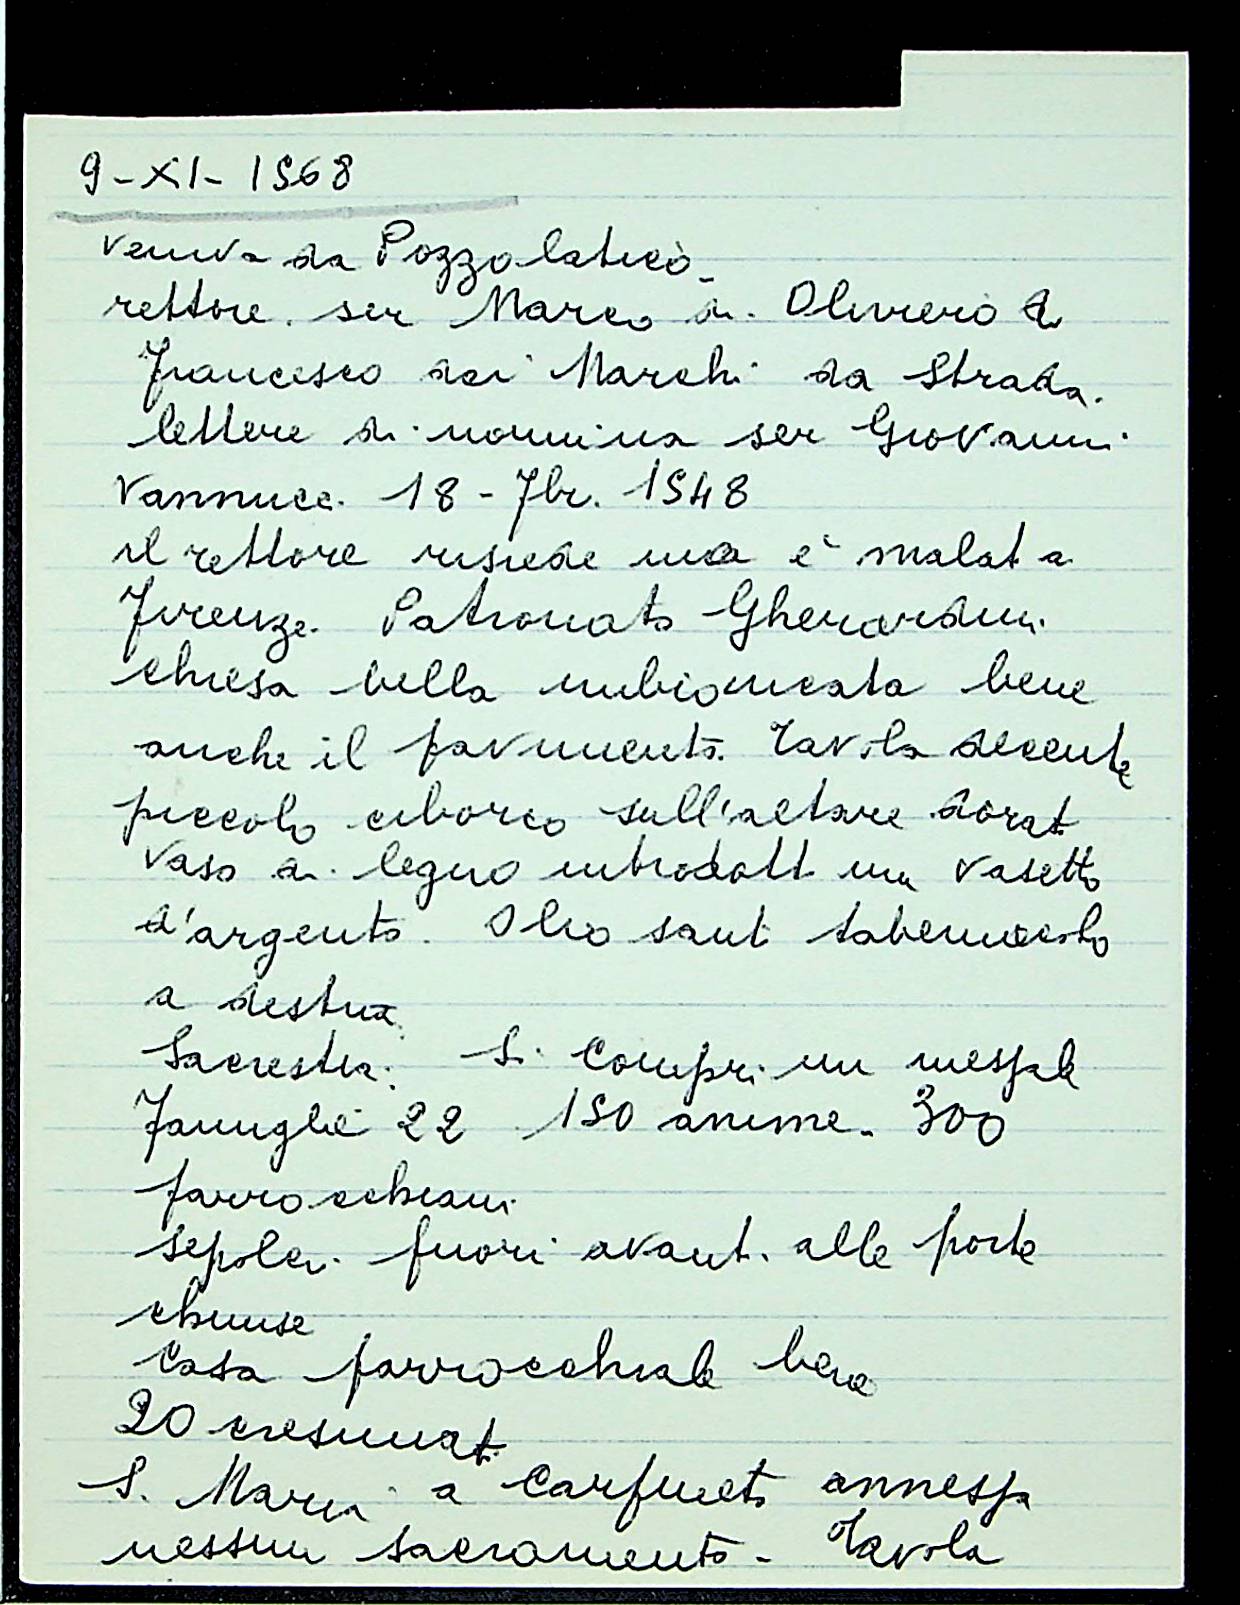 9-XI-1568
veniva da Pozzolatico
rettore ser Marco di Oliviero di
Francesco dei Marchi da Strada.
lettere di nomina ser Giovanni
Vannucc. 18-7br. 1548
il rettore risiede ma è malat a
Firenze. Patronato Gherardini
chiesa bella imbiancata bene
anche il pavimento. Tavola decente
piccolo ciborio sull'altare dorat
vaso di legno introdott un vasetto
d'argento. Olio sant tabernacolo
a destra
Sacrestia: Si compri un messale
Famiglie 22 150 anime. 300
parrocchiani
sepolcri fuori avanti alle porte
chiuse
Casa parrocchiale bene
20 cresimati
S. Maria a Carpineto annessa
nessun sacramento - Tavola